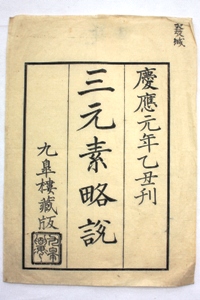 慶應元年乙丑刊
三元素略説
九皐樓藏版